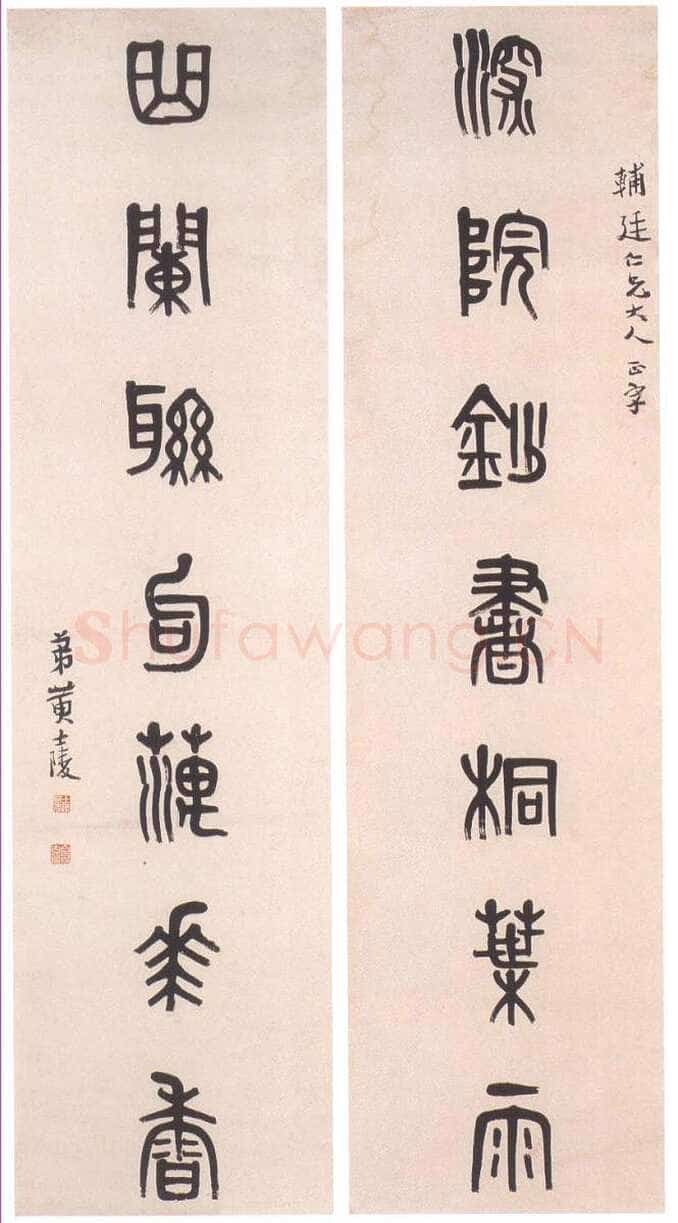 深院鈔書桐葉雨
輔廷仁兄大人正字
曲闌聯句蕅華香
弟黃士陵
Shufawang.CN